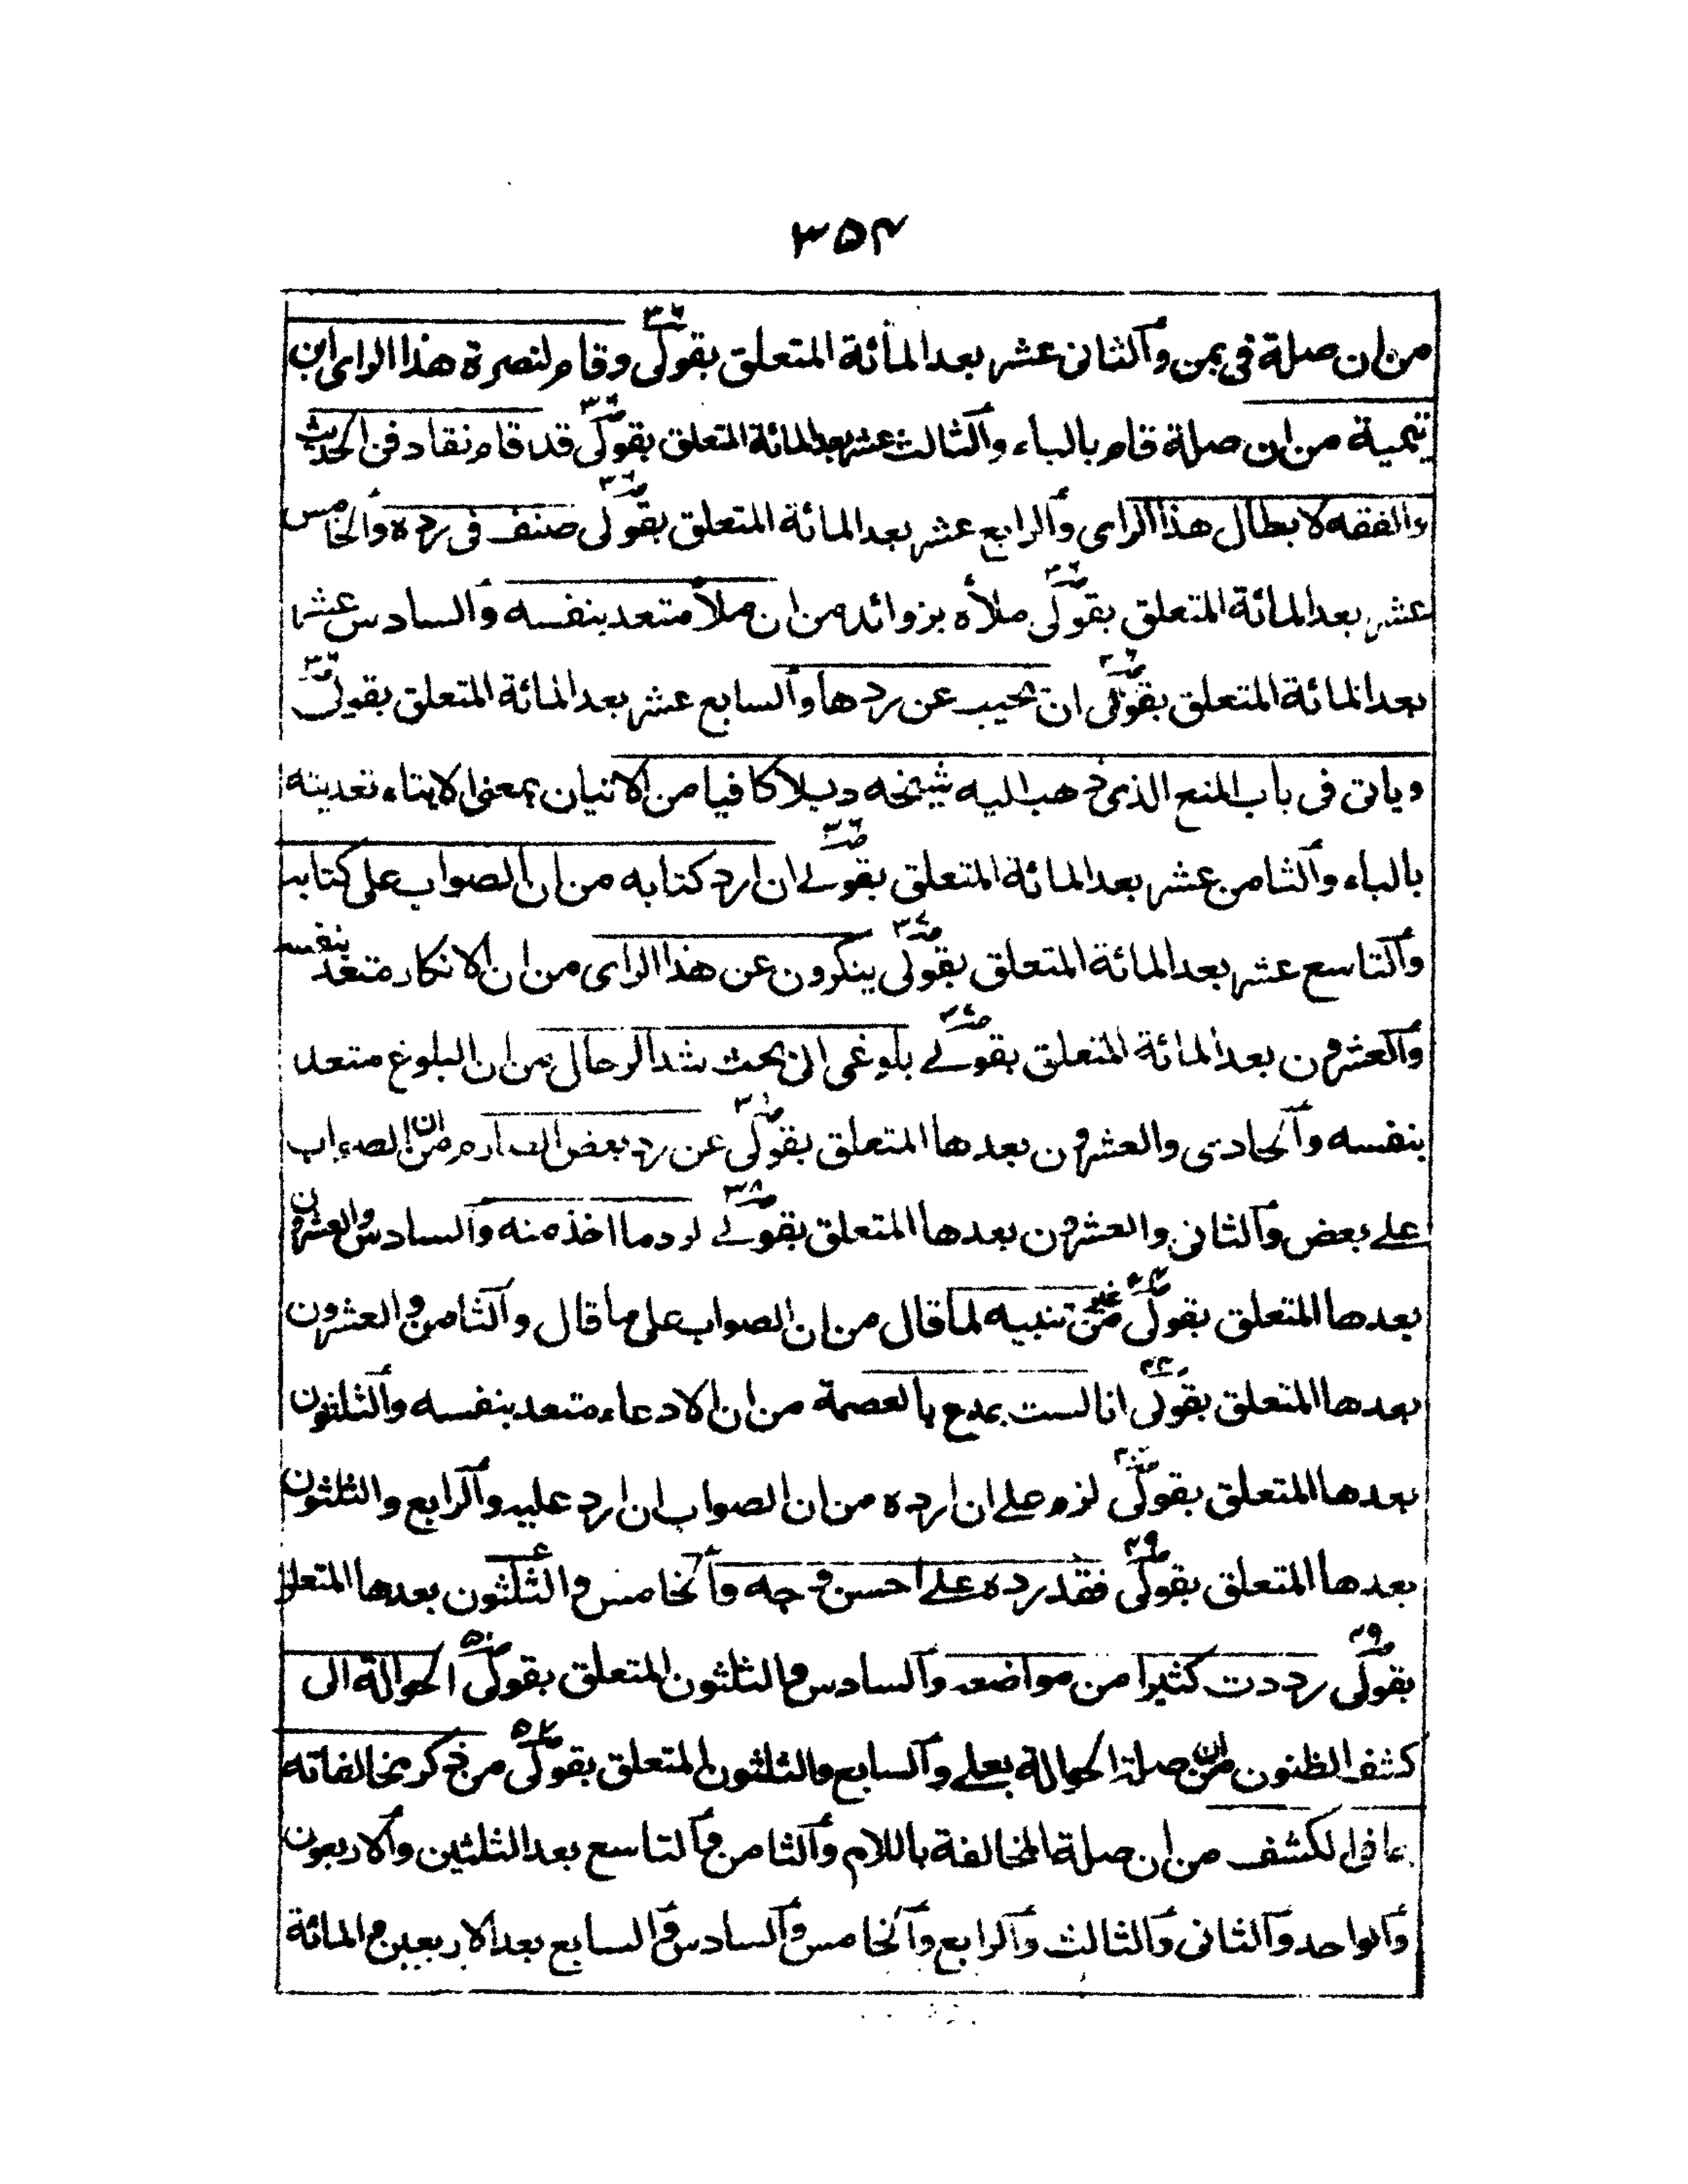 ٣٥٤
من ان صلة فى بمن والثانى عشر بعد المائة المتعلق بقولى وقام لنصرة هذا الراى ابن
تيمية من ان صلة قام بالباء والثالث عشر بعد المائة المتعلق بقولى قد قام نقاد فن الحديث
والفقه لابطال هذا الراى والرابع عشر بعد المائة المتعلق بقولى صنف فى رده والخامس
عشر بعد المائة المتعلق بقولى ملأه بزوائد من ان ملأ متعد بنفسه والسادس عشر
بعد المائة المتعلق بقولى ان يجيب عن ردها والسابع عشر بعد المائة المتعلق بقولى
وياتى فى باب المنع الذى ذهب اليه شيخه دليلا كافيا من الاتيان بمعنى الايتاء تعديته
بالباء والثامن عشر بعد المائة المتعلق بقولے ان ارد كتابه من ان الصواب على كتابه
والتاسع عشر بعد المائة المتعلق بقولى ينكرون عن هذا الراى من ان الانكار متعد بنفسه
والعشرون بعد المائة المتعلق بقولے بلوغى الى بحث شد الرحال من ان البلوغ متعد
بنفسه والحادى والعشرون بعدها المتعلق بقولى عن رد بعض من ان الصواب
علے بعض والثانى والعشرون بعدها المتعلق بقولے لرد ما اخذ منه والسادس والعشرون
بعدها المتعلق بقولى من غير تنبيه لما قال من ان الصواب على ما قال والثامن والعشرون
بعدها المتعلق بقولى انا لست بمدع بالعصمة من ان الادعاء متعد بنفسه والثلثون
بعدها المتعلق بقولى لزم علے ان ارده من ان الصواب ان ارد عليه والرابع والثلثون
بعدها المتعلق بقولى فقد رده علے احسن وجه والخامس والثلثون بعدها المتعلق
بقولى رددت كثيرا من مواضعه والسادس والثلثون المتعلق بقولى الحوالة الى
كشف الظنون من ان صلة الحوالة بعلے والسابع والثلثون المتعلق بقولى من ذكر مخالفاته
لما فى الكشف من ان صلة المخالفة باللام والثامن والتاسع بعد الثلثين والاربعون
والواحد والثانى والثالث والرابع والخامس والسادس والسابع بعد الاربعين والمائة